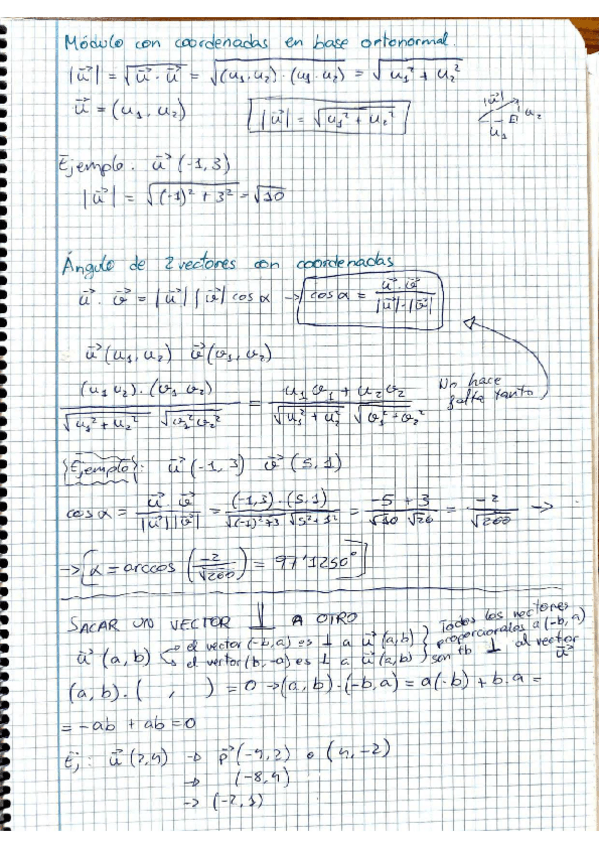 Módulo con coordenadas en base ortonormal.
|u⃗| = √(u⃗ · u⃗) = √((u₁, u₂) · (u₁, u₂)) = √(u₁² + u₂²)
u⃗ = (u₁, u₂) |u⃗| = √(u₁² + u₂²)
|u⃗| u₂ u₁
Ejemplo. u⃗ (-1, 3)
|u⃗| = √((-1)² + 3²) = √10
Ángulo de 2 vectores con coordenadas
u⃗ · v⃗ = |u⃗| |v⃗| cos α → cos α = (u⃗ · v⃗) / (|u⃗| · |v⃗|)
u⃗ (u₁, u₂) v⃗ (v₁, v₂)
(u₁ u₂) · (v₁ v₂) / (√(u₁² + u₂²) √(v₁² v₂²)) = (u₁ v₁ + u₂ v₂) / (√(u₁² + u₂²) √(v₁² + v₂²))
No hace
falta tanto
Ejemplo: u⃗ (-1, 3) v⃗ (5, 1)
cos α = (u⃗ · v⃗) / (|u⃗| |v⃗|) = (-1, 3) · (5, 1) / (√((-1)² + 3) √(5² + 1²)) = (-5 + 3) / (√10 √26) = -2 / √260 →
→ [α = arccos (-2 / √260) = 97'1250°]
SACAR UN VECTOR ⊥ A OTRO
u⃗ (a, b) el vector (-b, a) es ⊥ a u⃗ (a, b)
el vector (b, -a) es ⊥ a u⃗ (a, b)
Todos los vectores
proporcionales a (-b, a)
son tb ⊥ al vector
u⃗
(a, b) · ( , ) = 0 → (a, b) · (-b, a) = a(-b) + b · a =
= -ab + ab = 0
Ej: u⃗ (2, 4) → p⃗ (-4, 2) o (4, -2)
→ (-8, 4)
→ (-2, 1)